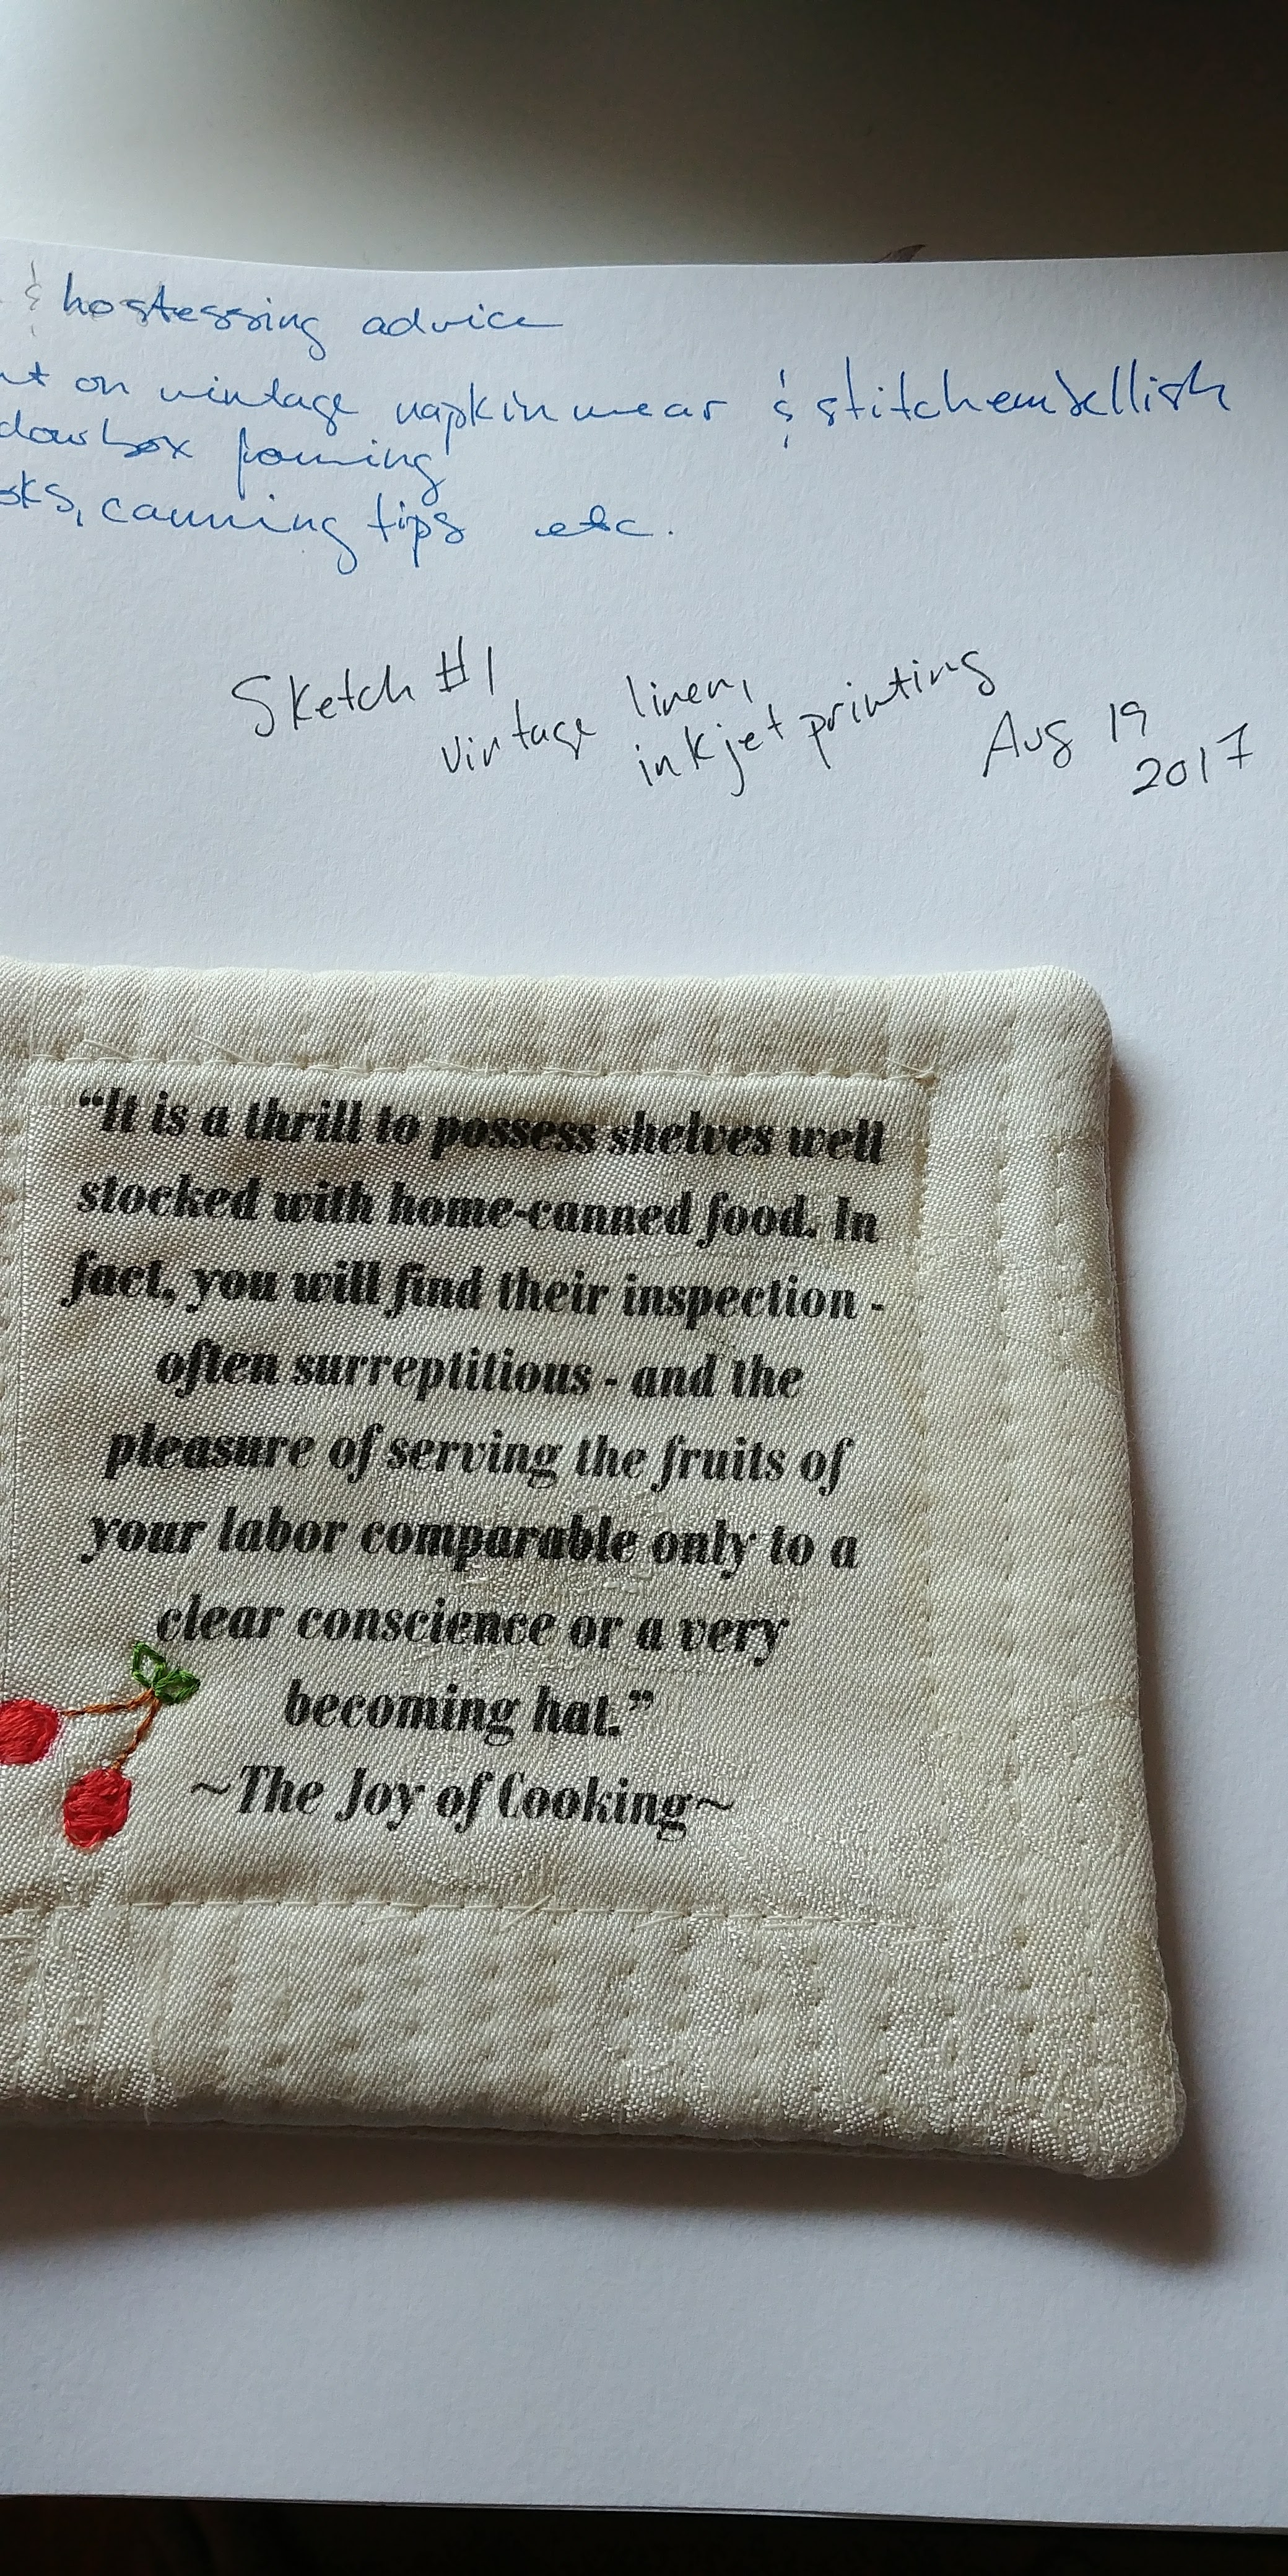 & hostessing advice
on vintage napkin wear & stitch embellish
box framing
, canning tips etc.
Sketch #1
vintage linen,
inkjet printing
Aug 19
2017
“It is a thrill to possess shelves well
stocked with home-canned food. In
fact, you will find their inspection -
often surreptitious - and the
pleasure of serving the fruits of
your labor comparable only to a
clear conscience or a very
becoming hat.”
~The Joy of Cooking~